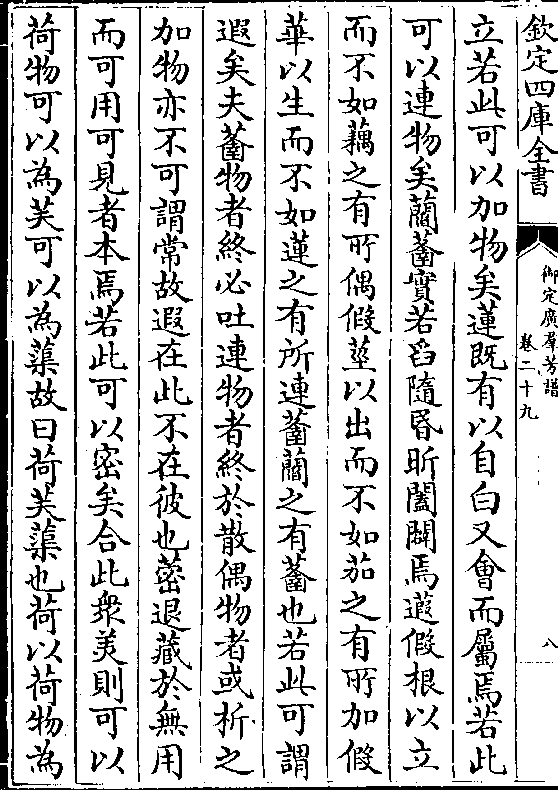 欽定四庫全書
御定廣羣芳譜
卷二十九
八
立若此可以加物矣蓮既有以自白又會而屬焉若此
可以連物矣菡萏實若臽隨昏昕闔闢焉蕸假根以立
而不如藕之有所偶假莖以出而不如茄之有所加假
華以生而不如蓮之有所連萏菡之有萏也若此可謂
遐矣夫萏物者終必吐連物者終於散偶物者或析之
加物亦不可謂常故遐在此不在彼也蔤退藏於無用
而可用可見者本焉若此可以密矣合此衆美則可以
荷物可以為芙可以為蕖故曰荷芙蕖也荷以荷物為